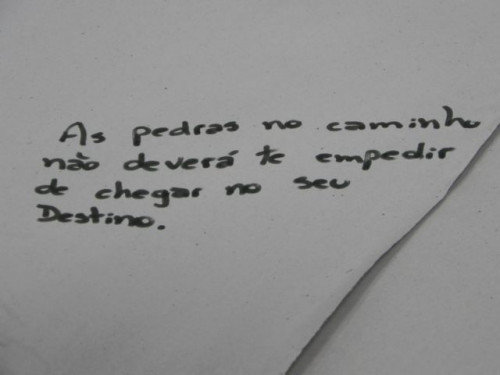 As pedras no caminho
não deverá te empedir
de chegar no seu
Destino.